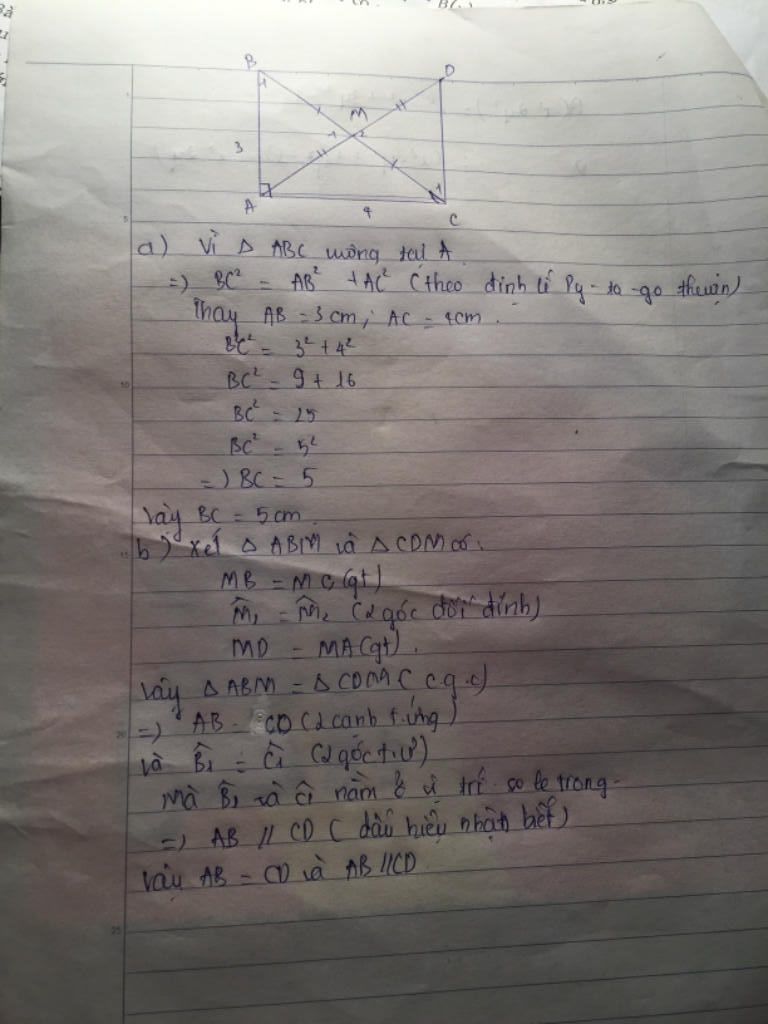 B
D
1
M
3
1
2
1
A
4
C
a) Vì Δ ABC vuông tại A
=) BC² = AB² + AC² (theo định lí Py-ta-go thuận)
Thay AB = 3 cm; AC = 4cm.
BC² = 3² + 4²
BC² = 9 + 16
BC² = 25
BC² = 5²
=) BC = 5
Vậy BC = 5cm.
b) Xét Δ ABM và Δ CDM có:
MB = MC (gt)
M̂₁ = M̂₂ (2 góc đối đỉnh)
MD = MA (gt).
Vậy Δ ABM = Δ CDM (c.g.c)
=) AB = CD (2 cạnh t.ứng)
và B̂₁ = Ĉ₁ (2 góc t.ư)
Mà B̂₁ và Ĉ₁ nằm ở vị trí so le trong.
=) AB // CD (dấu hiệu nhận biết)
Vậy AB = CD và AB // CD